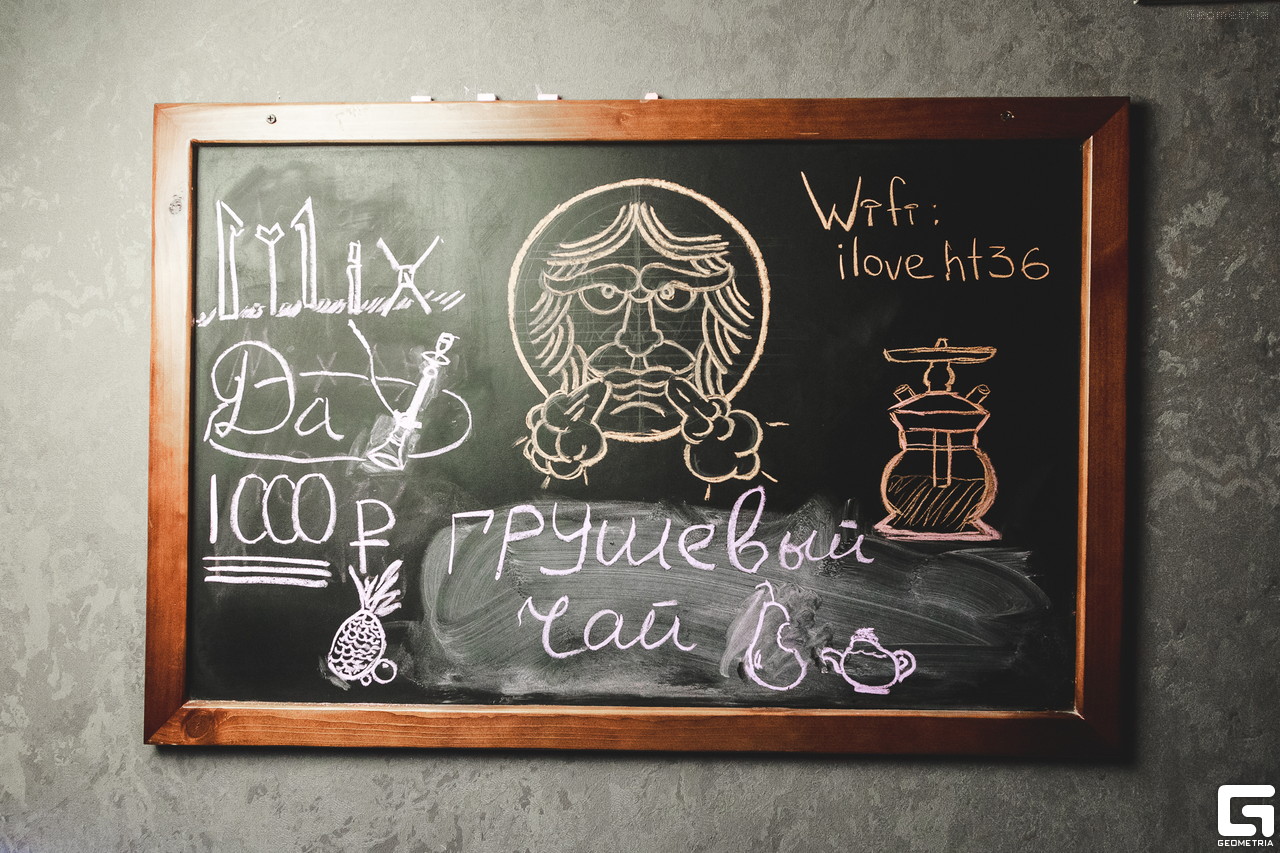 Mix
Day
1000 ₽
Wifi:
ilove ht36
грушевый
чай
Geometria
GEOMETRIA